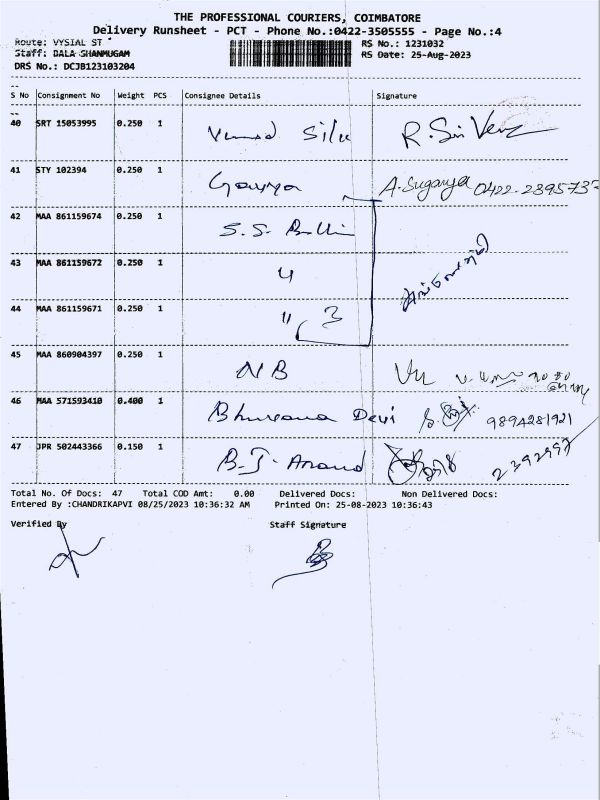 THE PROFESSIONAL COURIERS, COIMBATORE
Delivery Runsheet - PCT - Phone No.:0422-3505555 - Page No.:4
Route: VYSIAL ST RS No.: 1231032
Staff: DALA SHANMUGAM RS Date: 25-Aug-2023
DRS No.: DCJB123103204
S No Consignment No Weight PCS Consignee Details Signature
40 SRT 15053995 0.250 1 R.Sri
41 STY 102394 0.250 1 Gowrya A.Suganya 0422-2895737
42 MAA 861159674 0.250 1 S.S.
43 MAA 861159672 0.250 1 "
44 MAA 861159671 0.250 1 " 3
45 MAA 860904397 0.250 1 NB
46 MAA 571593410 0.400 1 Bhuvana Devi 9894281921
47 JPR 502443366 0.150 1 B.J. Anand 2392957
Total No. Of Docs: 47 Total COD Amt: 0.00 Delivered Docs: Non Delivered Docs:
Entered By :CHANDRIKAPVI 08/25/2023 10:36:32 AM Printed On: 25-08-2023 10:36:43
Verified By Staff Signature